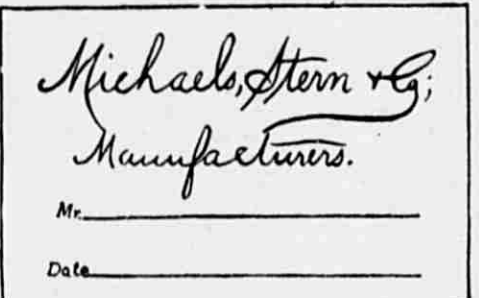 Michaels, Stern & Co;
Manufacturers.
Mr.
Date